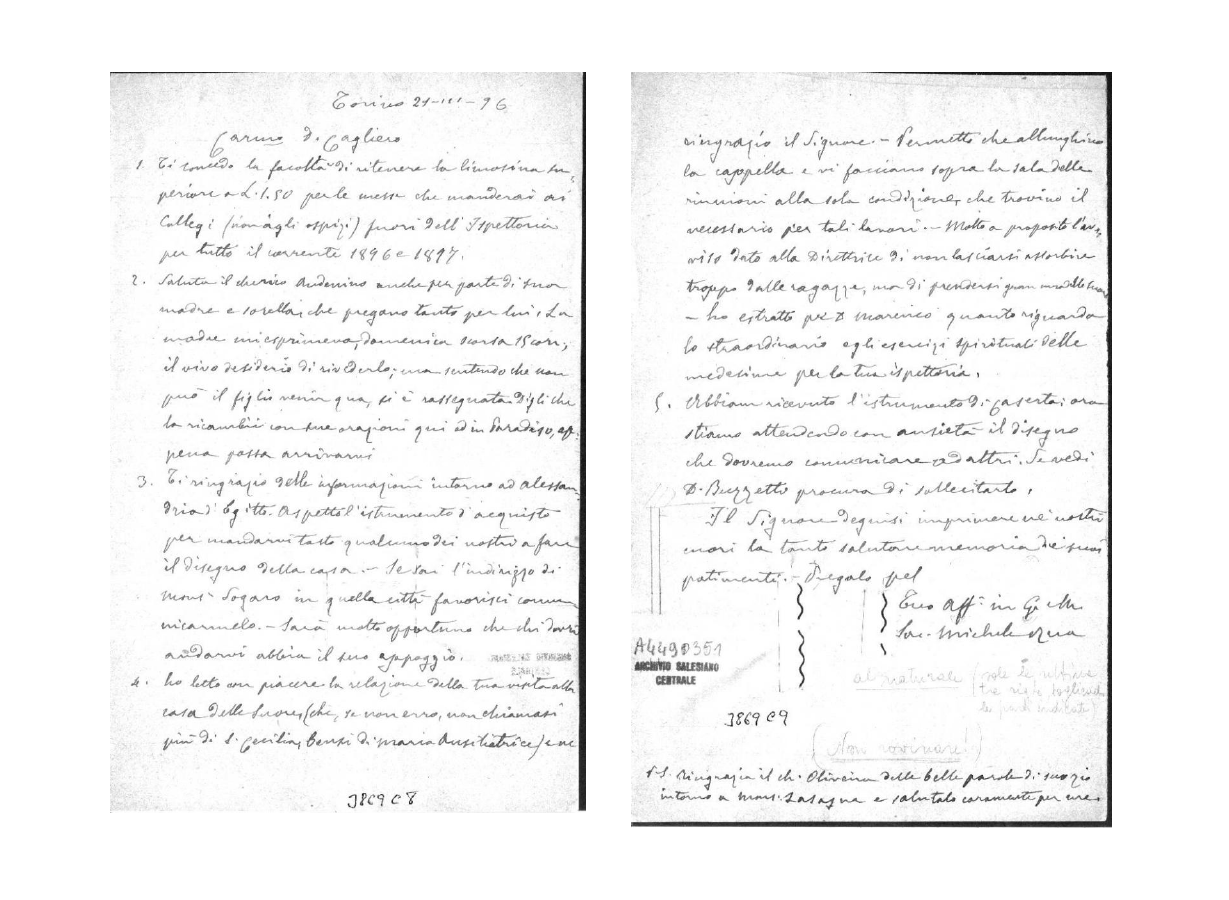 Torino 21-III-96
Carmo D. Cagliero
1. Ti concedo la facoltà di ritenere la limosina su-
periore a L. 1.50 per le messe che manderai ai
Collegi (non agli ospizi) fuori dell'Ispettoria
per tutto il corrente 1896 e 1897.
2. Saluta il chierico Audenino anche per parte di sua
madre e sorella, che pregano tanto per lui. La
madre mi esprimeva, domenica scorsa 15 corr,
il vivo desiderio di rivederlo; ma sentendo che non
può il figlio venir qua, si è rassegnata. Digli che
la ricambii con sue orazioni qui ed in Paradiso, ap-
pena possa arrivarvi
3. Ti ringrazio delle informazioni intorno ad Alessan-
dria d'Egitto. Aspetto l'istrumento d'acquisto
per mandarvi tosto qualcuno dei nostri a fare
il disegno della casa. - Se sai l'indirizzo di
Mons. Sogaro in quella città favorisci comu-
nicarmelo. - Sarà molto opportuno che chi dovrà
andarvi abbia il suo appoggio.
4. ho letto con piacere la relazione della tua visita alla
casa delle Suore, (che, se non erro, non chiamasi
più di S. Cecilia, bensì di Maria Ausiliatrice) e ne
J869 C8
ringrazio il Signore. - Permetto che allunghino
la cappella e vi facciano sopra la sala delle
riunioni alla sola condizione, che trovino il
necessario per tali lavori. - Molto a proposito l'av-
viso dato alla Direttrice di non lasciarsi assorbire
troppo dalle ragazze, ma di prendersi gran cura delle suore
- ho estratto per D Marenco quanto riguarda
lo straordinario e gli esercizi spirituali delle
medesime per la tua ispettoria.
5. Abbiam ricevuto l'istrumento di Caserta; ora
stiamo attendendo con ansietà il disegno
che dovremo comunicare ad altri. Se vedi
D. Buzzetti procura di sollecitarlo.
Il Signore degnisi imprimere ne' nostri
cuori la tanto salutare memoria dei suoi
patimenti. - Pregalo pel
Tuo Aff. in G. e M.
Sac. Michele Rua
A4490351
ARCHIVIO SALESIANO
CENTRALE
al naturale (solo le ultime
tre righe togliendo
le parti indicate)
J869 C9
(Non rovinare!)
P.S. Ringrazia il ch. Oliveira delle belle parole di suo zio
intorno a Mons. Lasagna e salutalo caramente per me.